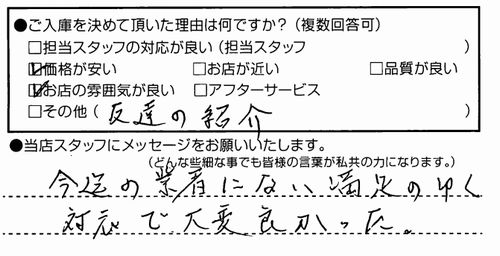 ●ご入庫を決めて頂いた理由は何ですか？（複数回答可）
□担当スタッフの対応が良い（担当スタッフ　　　　　）
☑価格が安い　□お店が近い　□品質が良い
☑お店の雰囲気が良い　□アフターサービス
□その他（友達の紹介　　　　　）
●当店スタッフにメッセージをお願いいたします。
（どんな些細な事でも皆様の言葉が私共の力になります。）
今迄の業者にない満足のゆく
対応で大変良かった。